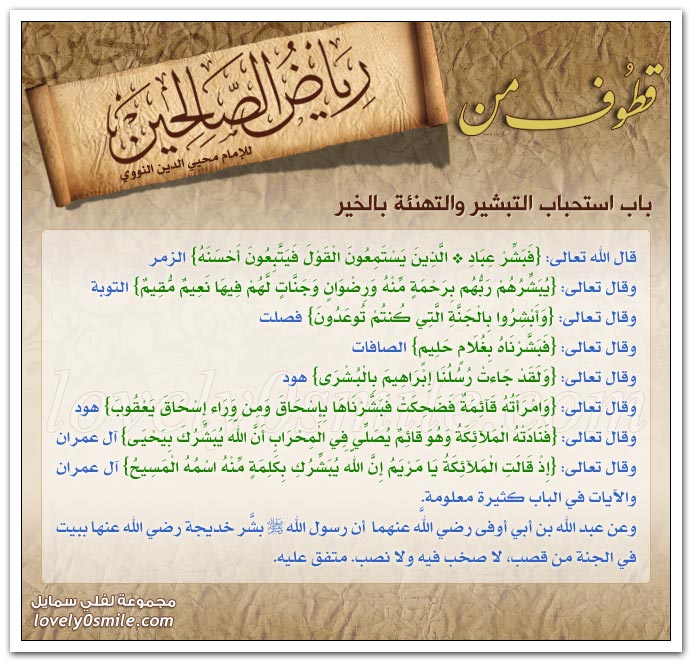 قطوف من
رياض الصالحين
للإمام محيي الدين النووي
باب استحباب التبشير والتهنئة بالخير
قال الله تعالى: {فَبَشِّرْ عِبَادِ ❖ الَّذِينَ يَسْتَمِعُونَ الْقَوْلَ فَيَتَّبِعُونَ أَحْسَنَهُ} الزمر
وقال تعالى: {يُبَشِّرُهُمْ رَبُّهُم بِرَحْمَةٍ مِّنْهُ وَرِضْوَانٍ وَجَنَّاتٍ لَّهُمْ فِيهَا نَعِيمٌ مُّقِيمٌ} التوبة
وقال تعالى: {وَأَبْشِرُوا بِالْجَنَّةِ الَّتِي كُنتُمْ تُوعَدُونَ} فصلت
وقال تعالى: {فَبَشَّرْنَاهُ بِغُلَامٍ حَلِيمٍ} الصافات
وقال تعالى: {وَلَقَدْ جَاءتْ رُسُلُنَا إِبْرَاهِيمَ بِالْبُشْرَى} هود
وقال تعالى: {وَامْرَأَتُهُ قَآئِمَةٌ فَضَحِكَتْ فَبَشَّرْنَاهَا بِإِسْحَاقَ وَمِن وَرَاء إِسْحَاقَ يَعْقُوبَ} هود
وقال تعالى: {فَنَادَتْهُ الْمَلآئِكَةُ وَهُوَ قَائِمٌ يُصَلِّي فِي الْمِحْرَابِ أَنَّ اللّهَ يُبَشِّرُكَ بِيَحْيَى} آل عمران
وقال تعالى: {إِذْ قَالَتِ الْمَلآئِكَةُ يَا مَرْيَمُ إِنَّ اللّهَ يُبَشِّرُكِ بِكَلِمَةٍ مِّنْهُ اسْمُهُ الْمَسِيحُ} آل عمران
والآيات في الباب كثيرة معلومة.
وعن عبد الله بن أبي أوفى رضي اللَّه عنهما أن رسول الله ﷺ بشَّر خديجة رضي الله عنها ببيت
في الجنة من قصب، لا صخب فيه ولا نصب. متفق عليه.
مجموعة لفلي سمايل
lovely0smile.com
lovely0smile.com